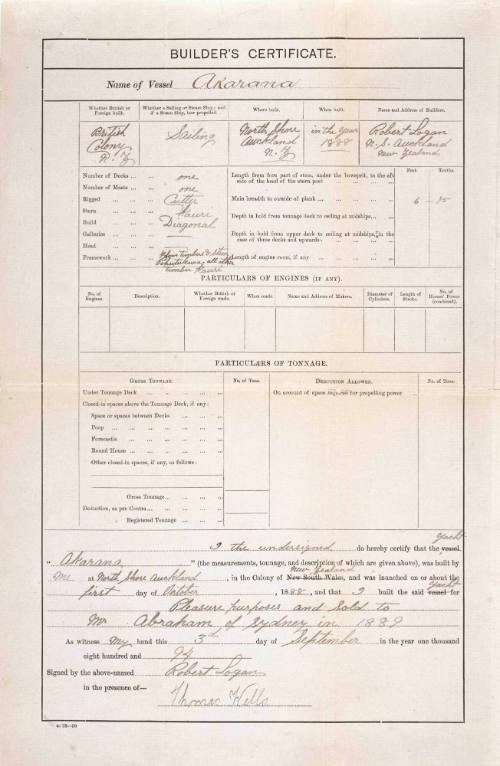 BUILDER'S CERTIFICATE.
Name of Vessel Akarana
Whether British or Foreign built.
Whether a Sailing or Steam Ship; and if a Steam Ship, how propelled.
Where built.
When built.
Name and Address of Builders.
British Colony N.Z
Sailing
North Shore Auckland N.Z
in the year 1888
Robert Logan N.S. Auckland New Zealand
Number of Decks ... one
Number of Masts ... one
Rigged ... Cutter
Stern ... Kauri
Build ... Diagonal
Galleries ...
Head ...
Framework ... Pohutukawa all other timber Kauri
Feet. Tenths.
Length from fore part of stem, under the bowsprit, to the aft side of the head of the stern post
Main breadth to outside of plank ... 6
Depth in hold from tonnage deck to ceiling at midships...
Depth in hold from upper deck to ceiling at midships, in the case of three decks and upwards
Length of engine room, if any ...
PARTICULARS OF ENGINES (IF ANY).
No. of Engines
Description.
Whether British or Foreign made.
When made.
Name and Address of Makers.
Diameter of Cylinders.
Length of Stroke.
No. of Horses' Power (combined).
PARTICULARS OF TONNAGE.
GROSS TONNAGE.
No. of Tons.
DEDUCTION ALLOWED.
No. of Tons.
Under Tonnage Deck ...
On account of space required for propelling power
Closed-in spaces above the Tonnage Deck, if any:
Space or spaces between Decks ...
Poop ...
Forecastle ...
Round House ...
Other closed-in spaces, if any, as follows:
Gross Tonnage...
Deduction, as per Contra...
Registered Tonnage ...
yacht
I the undersigned do hereby certify that the vessel
"Akarana" (the measurements, tonnage, and description of which are given above), was built by
New Zealand
me at North Shore Auckland, in the Colony of New South Wales, and was launched on or about the
yacht
first day of October, 1888, and that I built the said vessel for
Pleasure purposes and sold to
Mr Abraham of Sydney in 1889
As witness my hand this 3rd day of September in the year one thousand
eight hundred and 94
Signed by the above-named Robert Logan
in the presence of—
Thomas Wells